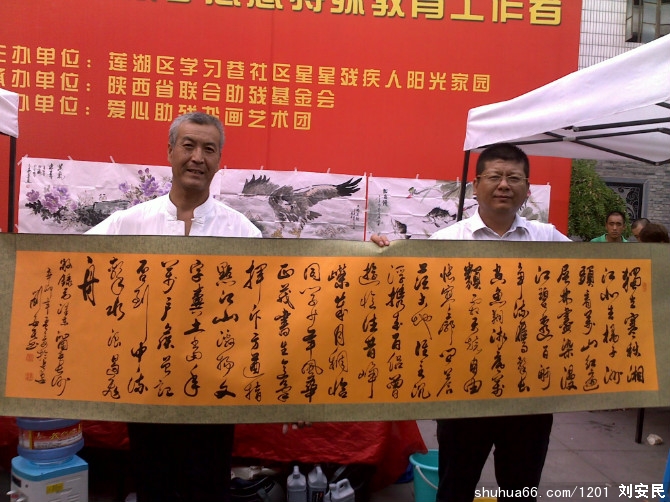 特殊教育工作者
主办单位：莲湖区学习巷社区星星残疾人阳光家园
承办单位：陕西省联合助残基金会
办单位：爱心助残书画艺术团
独立寒秋湘
江北去橘子洲
头看万山红遍
层林尽染漫
江碧透百舸
争流鹰击长
空鱼翔浅底万
类霜天竞自由
怅寥廓问苍
茫大地谁主沉
浮携来百侣曾
游忆往昔峥
嵘岁月稠恰
同学少年风华
正茂书生意气
挥斥方遒指
点江山激扬文
字粪土当年
万户侯曾记
否到中流
击水浪遏飞
舟
shuhua66.com/1201 刘安民